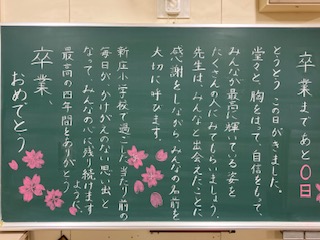 卒業まであと0日
とうとうこの日がきました。
堂々と、胸をはって、自信をもって、
みんなが最高に輝いている姿を
たくさんの人にみてもらいましょう。
先生は、みんなと出会えたことに
感謝をしながら、みんなの名前を
大切に呼びます。
新庄小学校で過ごした当たり前の
毎日が、かけがえのない思い出と
なって、みんなの心に残り続けますように。
最高の四年間をありがとう。
卒業、
おめでとう。